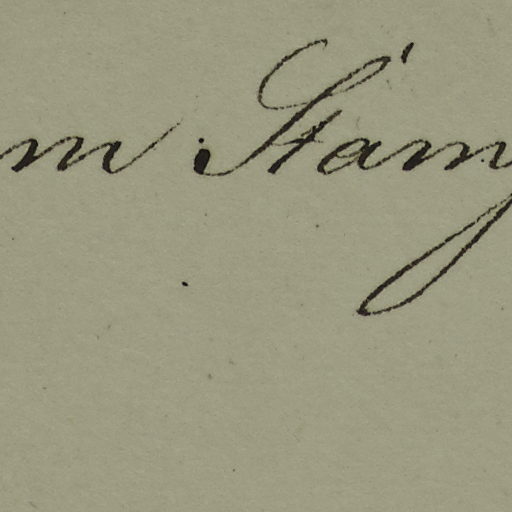 m Stamy